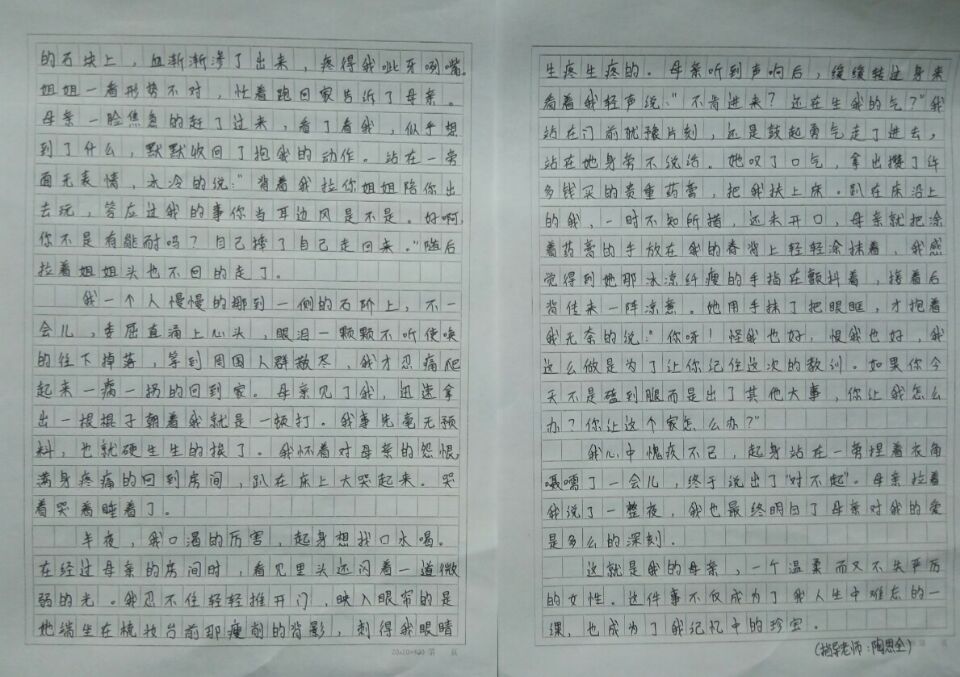 的石块上，血渐渐渗了出来，疼得我呲牙咧嘴。
姐姐一看形势不对，忙着跑回家告诉了母亲。
母亲一脸焦急的赶了过来，看了看我，似乎想
到了什么，默默收回了抱我的动作。站在一旁
面无表情，冰冷的说："背着我拉你姐姐陪你出
去玩，答应过我的事你当耳边风是不是。好啊，
你不是有能耐吗？自己摔了自己走回来。"随后
拉着姐姐头也不回的走了。
我一个人慢慢的挪到一侧的石阶上，不一
会儿，委屈直涌上心头，眼泪一颗颗不听使唤
的往下掉落，等到周围人群散尽，我才忍痛爬
起来一瘸一拐的回到家。母亲见了我，迅速拿
出一根棍子朝着我就是一顿打。我事先毫无预
料，也就硬生生的挨了。我怀着对母亲的怨恨，
满身疼痛的回到房间，趴在床上大哭起来。哭
着哭着睡着了。
半夜，我口渴的厉害，起身想找口水喝。
在经过母亲的房间时，看见里头还闪着一道微
弱的光。我忍不住轻轻推开门，映入眼帘的是
她端坐在梳妆台前那瘦削的背影，刺得我眼睛
20x20=400 第 页
生疼生疼的。母亲听到声响后，缓缓转过身来
看着我轻声说："不肯进来？还在生我的气？"我
站在门前犹豫片刻，还是鼓起勇气走了进去，
站在她身旁不说话。她叹了口气，拿出攒了许
多钱买的贵重药膏，把我扶上床。趴在床沿上
的我，一时不知所措，还未开口，母亲就把涂
着药膏的手放在我的脊背上轻轻涂抹着，我感
觉得到她那冰凉纤瘦的手指在颤抖着，接着后
背传来一阵凉意。她用手抹了把眼眶，才抱着
我无奈的说："你呀！怪我也好，恨我也好，我
这么做是为了让你记住这次的教训。如果你今
天不是磕到腿而是出了其他大事，你让我怎么
办？你让这个家怎么办？"
我心中愧疚不已，起身站在一旁捏着衣角
嗫嚅了一会儿，终于说出了"对不起"。母亲拉着
我说了一整夜，我也最终明白了母亲对我的爱
是多么的深刻。
这就是我的母亲，一个温柔而又不失严厉
的女性。这件事不仅成为了我人生中难忘的一
课，也成为了我记忆中的珍宝。
（指导老师：陶思全）